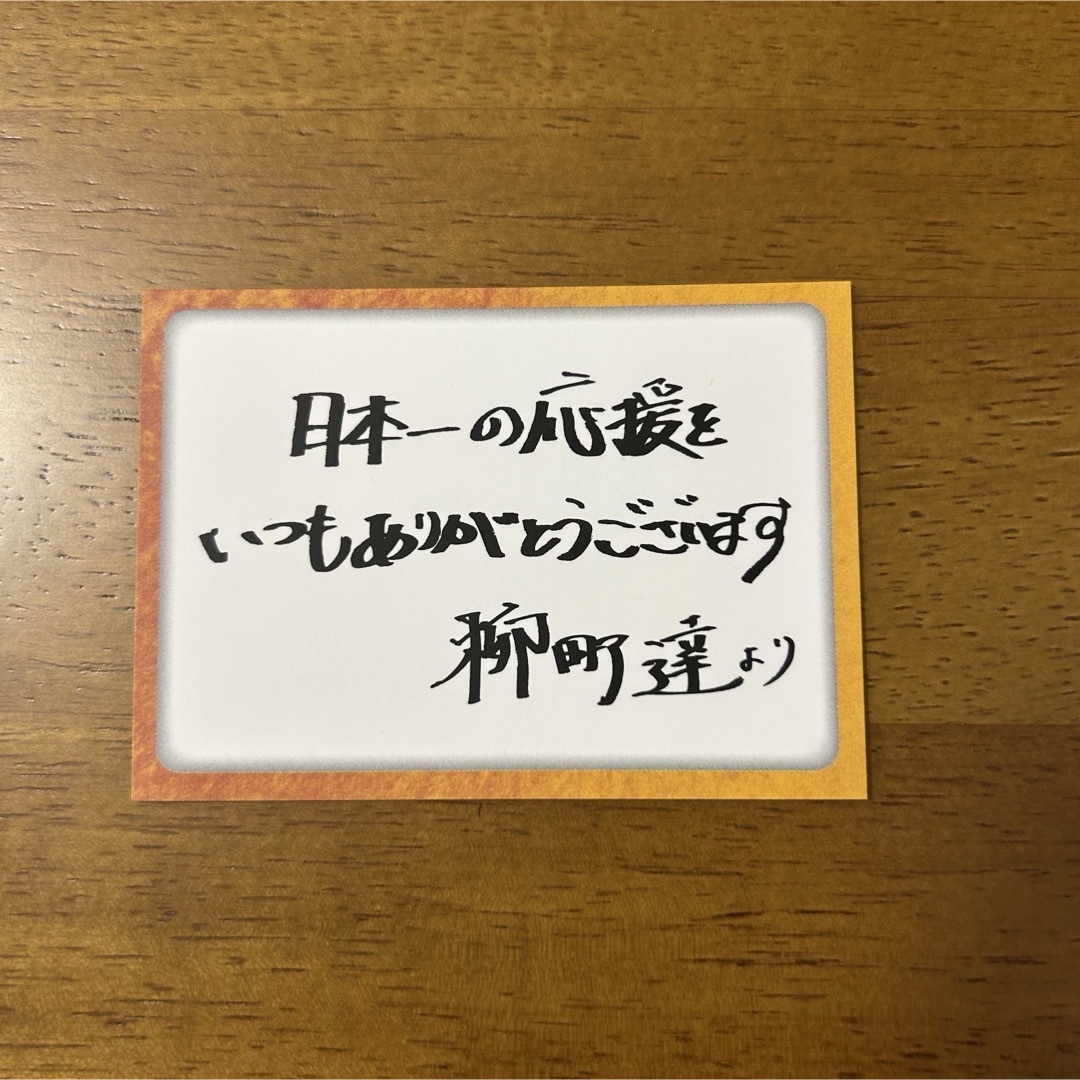 日本一の応援を
いつもありがとうございます
柳町達より